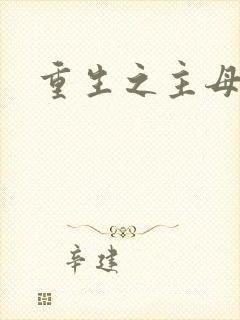 重生之主母
辛建